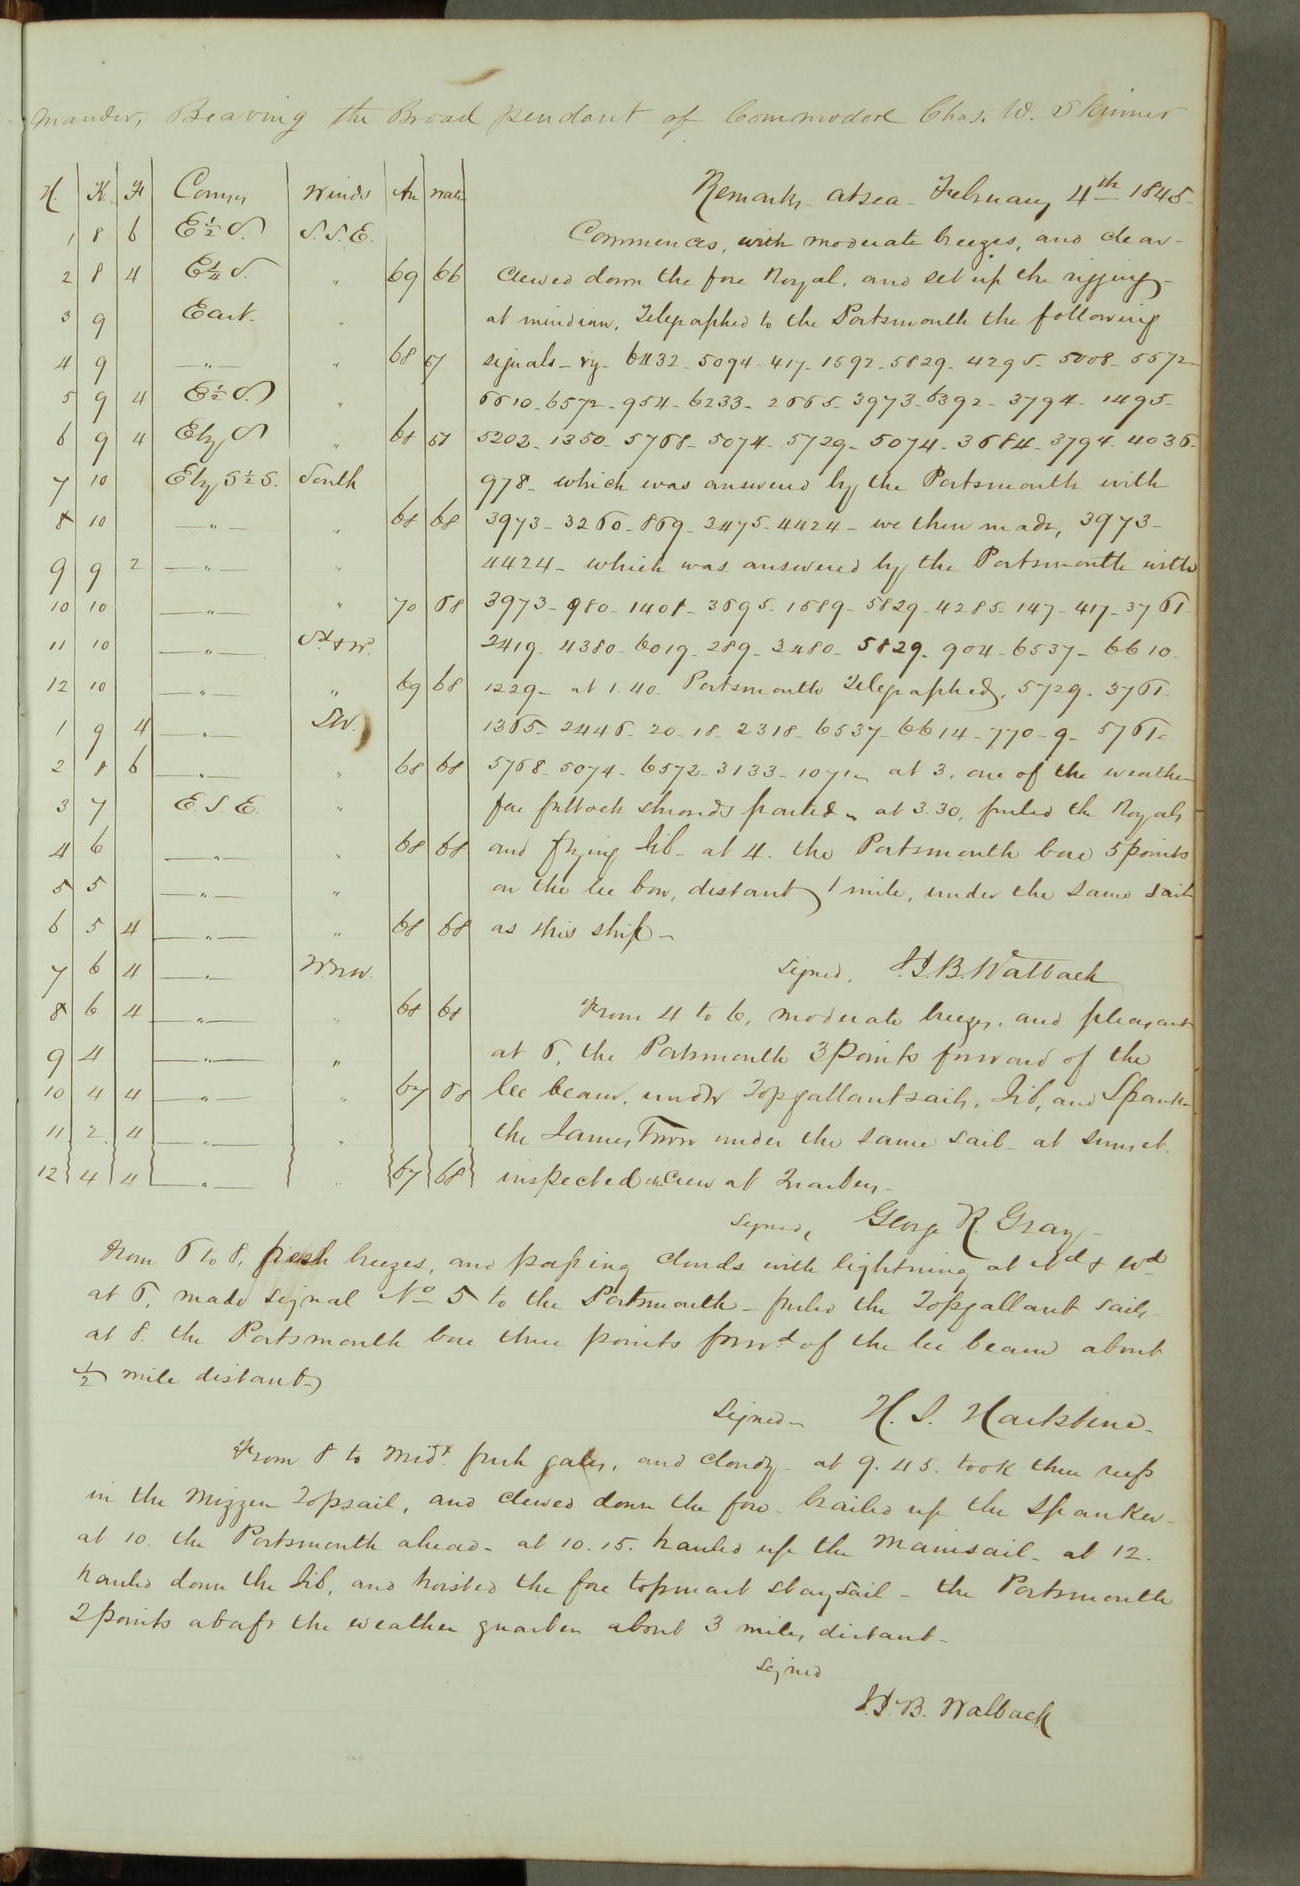 mander, Bearing the Broad pendant of Commodore Chas. W. Skinner
H. K. F Courses Winds Air Water Remarks at sea February 4th 1845
1 8 6 E½S. S.S.E. Commences, with moderate breezes, and clear
2 8 4 E¼S. " 69 66 clewed down the fore Royal, and set up the rigging
3 9 East. " at meridian, Telegraphed to the Portsmouth the following
4 9 " " 68 67 signals - viz - 6432 - 5094 - 417 - 1592 - 5829 - 4295 - 5008 - 5572
5 9 4 E½S. " 6610 - 6572 - 954 - 6233 - 2665 - 3973 - 6392 - 3794 - 1495
6 9 4 E by S " 68 67 5202 - 1350 - 5768 - 5074 - 5729 - 5074 - 3684 - 3794 - 4036
7 10 E by S ½ S. South 978 - which was answered by the Portsmouth with
8 10 " " 68 68 3973 - 3260 - 869 - 2475 - 4424 - we then made, 3973 -
9 9 2 " " 4424 - which was answered by the Portsmouth with
10 10 " " 70 68 3973 - 980 - 1408 - 3695 - 1689 - 5829 - 4285 - 147 - 417 - 3761
11 10 " Sd & W. 2419 - 4380 - 6019 - 289 - 3480 - 5829 - 904 - 6537 - 6610
12 10 " " 69 68 1229 - at 1.40. Portsmouth Telegraphed, 5729 - 3761
1 9 4 " SW. 1365 - 2446 - 20 - 18 - 2318 - 6537 - 6614 - 770 - 9 - 5761
2 8 6 " " 68 68 5768 - 5074 - 6572 - 3133 - 1071 - at 3. one of the weather
3 7 E S E. " fore futtock shrouds parted - at 3.30, furled the Royals
4 6 " " 68 68 and flying Jib - at 4. the Portsmouth bore 5 points
5 5 " " on the lee bow, distant 1 mile, under the same sail
6 5 4 " " 68 68 as this ship -
7 6 4 " WNW. signed, J.J.B. Walback
8 6 4 " " 68 68 From 4 to 6, moderate breezes, and pleasant
9 4 " " at 6, the Portsmouth 3 points forward of the
10 4 4 " " 67 68 lee beam, under Topgallantsails, Jib, and Spank
11 2 4 " " the James Town under the same sail - at sunset
12 4 4 " " 67 68 inspected the crew at Quarters -
signed, George R. Gray -
From 6 to 8, fresh breezes, and passing clouds with lightning at Nd & Wd
at 6, made signal No 5 to the Portsmouth - furled the Topgallant sails
at 8. the Portsmouth bore three points forwd of the lee beam about
½ mile distant
Signed - H. J. Hartstene -
From 8 to Midt. fresh gales, and cloudy - at 9.45. took three reefs
in the Mizzen Topsail, and clewed down the fore - brailed up the Spanker -
at 10. the Portsmouth ahead - at 10.15. hauled up the Mainsail - at 12.
hauled down the Jib, and hoisted the fore topmast staysail - the Portsmouth
2 points abaft the weather quarter about 3 miles distant -
signed
J.J.B. Walback